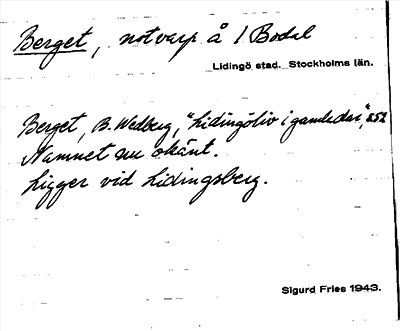 Berget, notvarp å 1 Bodal
Lidingö stad. Stockholms län.
Berget, B. Wedberg, "Lidingöliv i gamla dar", s 52
Namnet nu okänt.
Ligger vid Lidingsberg.
Sigurd Fries 1943.